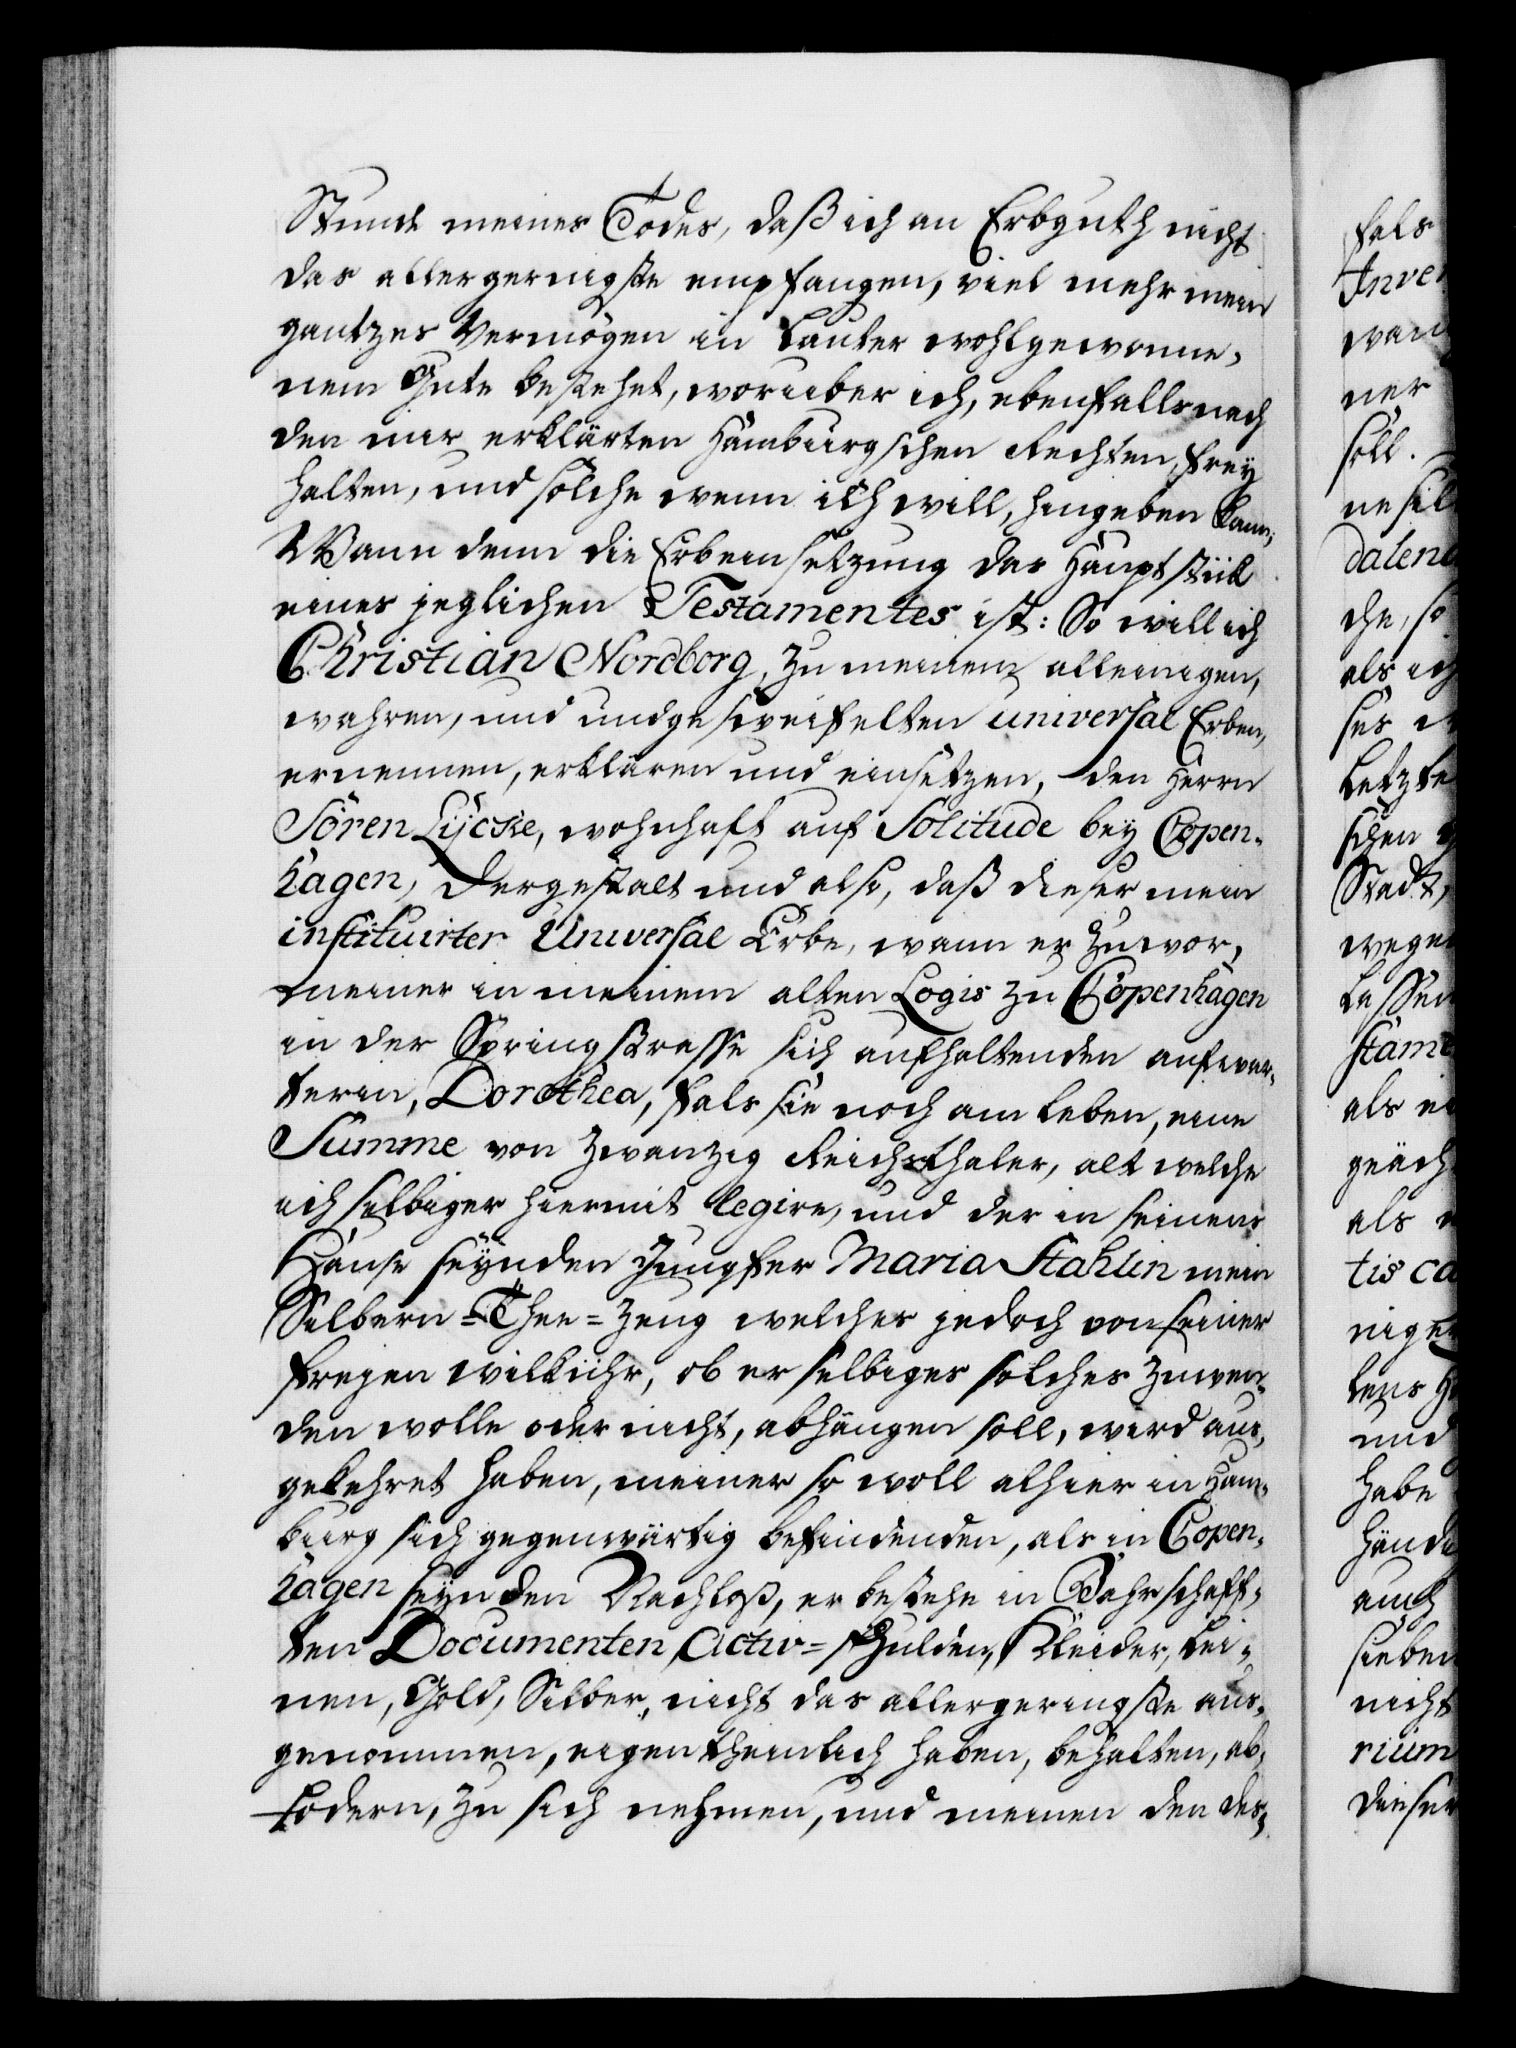 Stunde meines Todes, daß ich an Erbguth nicht
das allergeringste empfangen, viel mehr mein
gantzes Vermögen in lauter wohlgewonne-
nem Gute bestehet, worüber ich, ebenfalls nach
den mir erklärten Hamburgschen Rechten, frey
halten, und solche wem ich will, hingeben kann;
Wann denn die Erbeinsetzung das Hauptstük
eines jeglichen Testamentes ist: So will ich
Christian Nordborg, zu meinem alleinigen,
wahren, und undgezweifelten universal Erben,
ernennen, erklären und einsetzen, den Herrn
Sören Lÿcke, wohnhaft auf Solitude bey Copen-
hagen, dergestalt und also, daß dieser mein
instituirter Universal Erbe, wann er zuvor,
meiner in meinem alten Logis zu Copenhagen
in der Springstrasse sich aufhaltenden aufwar-
terin, Dorothea, fals sie noch am leben, eine
Summe von zwanzig Reichsthaler, alt welche
ich selbiger hiermit legire, und der in seinem
Hause seynden Jungfer Maria Stahlin mein
Silbern-Thee-zeug welches jedoch von seiner
freyen willkühr, ob er selbiges solches zuwen-
den wolle oder nicht, abhängen soll, wird aus-
gekehret haben, meiner so woll alhier in Ham-
burg sich gegenwärtig befindenden, als in Copen-
hagen seynden Nachlaß, er bestehe in Bahrschaff-
ten Documenten, Activ-schulden, Kleider, Lei-
nen, Gold, Silber, nicht das allergeringste aus-
genommen, eigenthümlich haben, behalten, ab-
fodern, zu sich nehmen, und meinen den des-
fals
Inven
wan
ner
soll.
ne sil
dalen
che, so
als ich
ses
letzte
schen
Stadt,
wege
lassen
stam
als
geach
als
tis ca
nige
tens
und
habe
hände
auch
sieben
nicht
rium
dieser